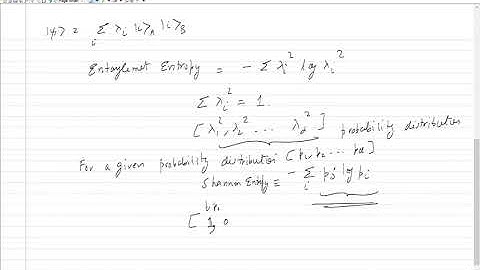 |ψ> = Σ_i λ_i |i>_A |i>_B
Entanglemet Entropy = - Σ λ_i² log λ_i²
Σ λ_i² = 1.
[λ_1², λ_2² ... λ_d²] probability distribution
For a given probability distribution [p_1, p_2 ... p_d]
Shannon Entropy ≡ - Σ_i p_i log p_i
[ 1, 0